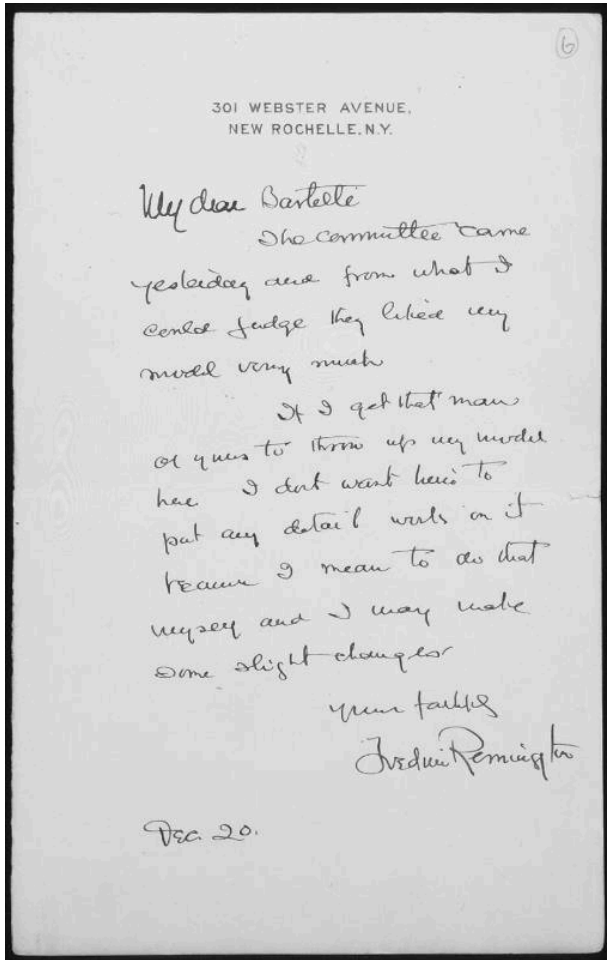 6
301 WEBSTER AVENUE,
NEW ROCHELLE, N.Y.
My dear Bartlett
The committee came
yesterday and from what I
could judge they liked my
model very much
If I get that man
of yours to throw up my model
here I dont want him to
put any detail work on it
because I mean to do that
myself and I may make
some slight changes
Yours faithfully
Frederic Remington
Dec. 20.